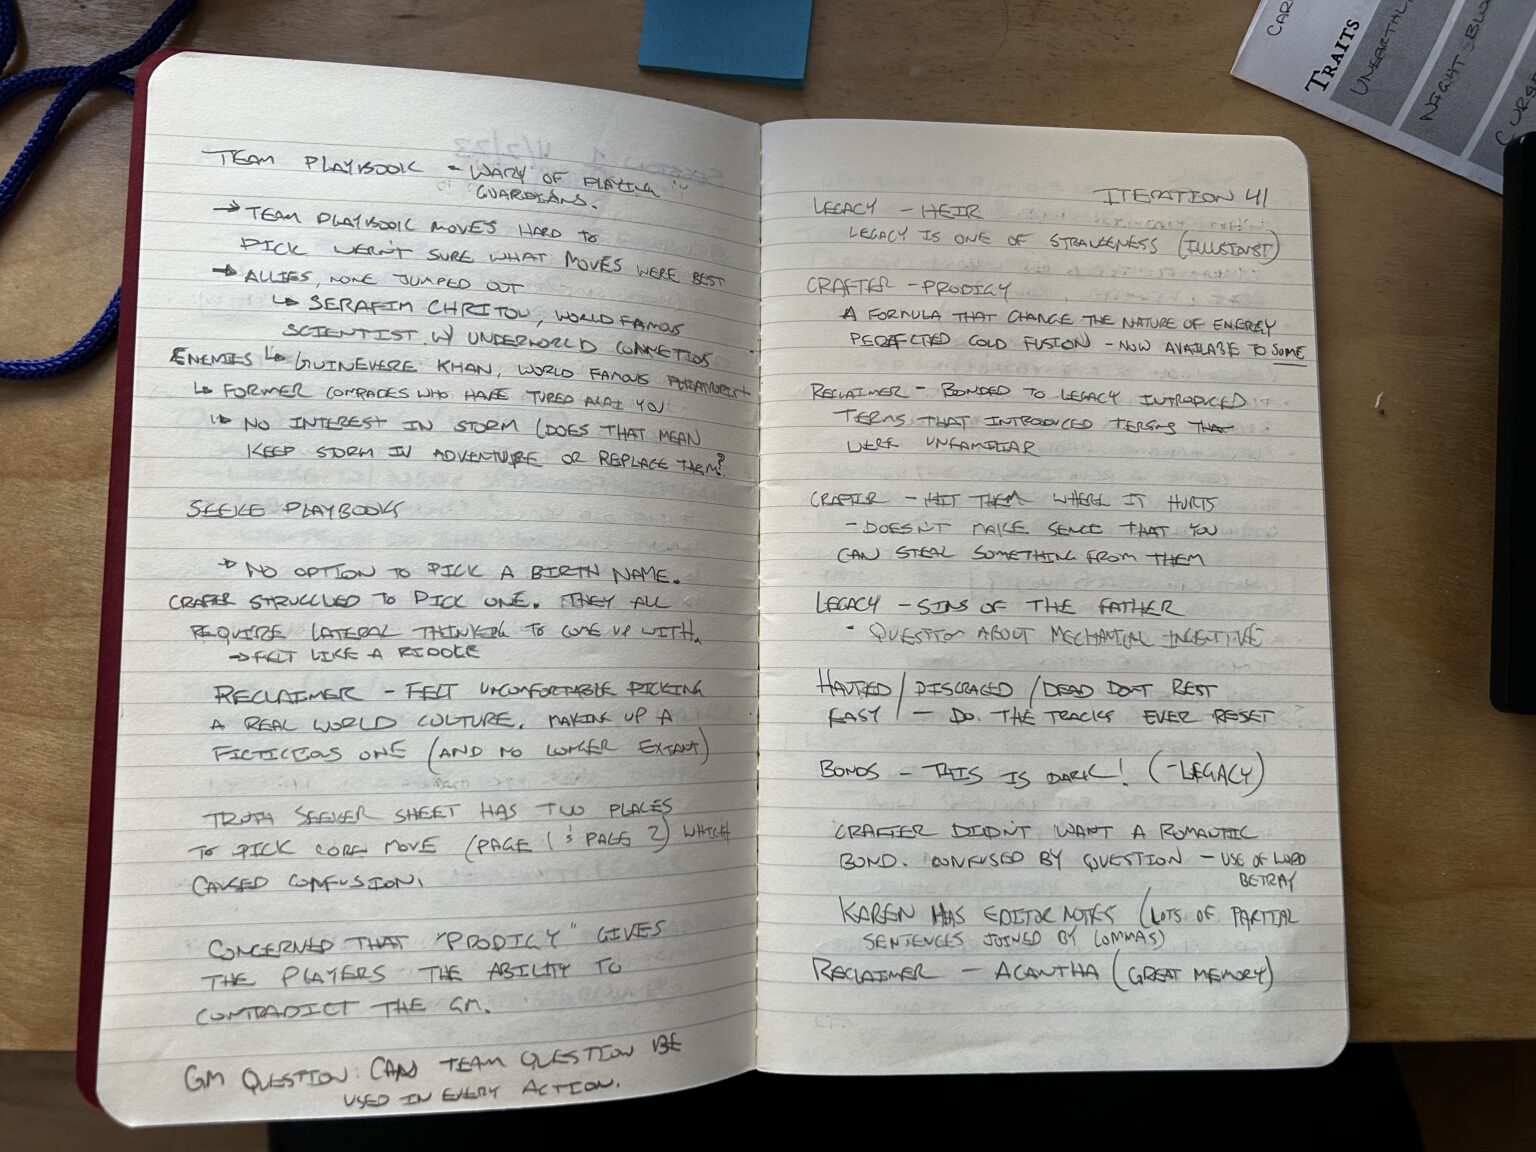 TEAM PLAYBOOK - WARY OF PLAYING
GUARDIANS.
→ TEAM PLAYBOOK MOVES HARD TO
PICK WERN'T SURE WHAT MOVES WERE BEST
→ ALLIES, NONE JUMPED OUT
↳ SERAFIM CHRITOU, WORLD FAMOUS
SCIENTIST W/ UNDERWORLD CONNETIOS
ENEMIES ↳ GUINEVERE KHAN, WORLD FAMOUS
↳ FORMER COMRADES WHO HAVE TURED YOU
↳ NO INTEREST IN STORM (DOES THAT MEAN
KEEP STORM IN ADVENTURE OR REPLACE THEM?
SEEKE PLAYBOOKS
→ NO OPTION TO PICK A BIRTH NAME.
CRAFER STRUGGLED TO PICK ONE. THEY ALL
REQUIRE LATERAL THINKING TO COME UP WITH.
→ FELT LIKE A RIDDLE
RECLAIMER - FELT UNCOMFORTABLE PICKING
A REAL WORLD CULTURE. MAKING UP A
FICTICIOUS ONE (AND NO LONGER EXTANT)
TRUTH SEEKER SHEET HAS TWO PLACES
TO PICK CORE MOVE (PAGE 1 & PAGE 2) WHICH
CAUSED CONFUSION.
CONCERNED THAT "PRODIGY" GIVES
THE PLAYERS THE ABILITY TO
CONTRADICT THE GM.
GM QUESTION: CAN TEAM QUESTION BE
USED IN EVERY ACTION.
ITERATION 41
LEGACY - HEIR
LEGACY IS ONE OF STRANGENESS (ILLUSIONIST)
CRAFTER - PRODIGY
A FORMULA THAT CHANGE THE NATURE OF ENERGY
PERFECTED COLD FUSION - NOW AVAILABLE TO SOME
RECLAIMER - BONDED TO LEGACY INTRODUCED
TERMS THAT INTRODUCED TERSMS THAT
WERE UNFAMILIAR
CRAFTER - HIT THEM WHERE IT HURTS
- DOESN'T MAKE SENCE THAT YOU
CAN STEAL SOMETHING FROM THEM
LEGACY - SINS OF THE FATHER
- QUESTION ABOUT MECHANICAL INCENTIVE
HAUTED / DISGRACED / DEAD DON'T REST
EASY / - DO THE TRACKS EVER RESET ?
BONDS - THIS IS DARK! (-LEGACY)
CRAFTER DIDN'T WANT A ROMANTIC
BOND. CONFUSED BY QUESTION - USE OF WORD
BETRAY
KAREN HAS EDITOR NOTES (LOTS OF PARTIAL
SENTENCES JOINED BY COMMAS)
RECLAIMER - ACANTHA (GREAT MEMORY)
TRAITS